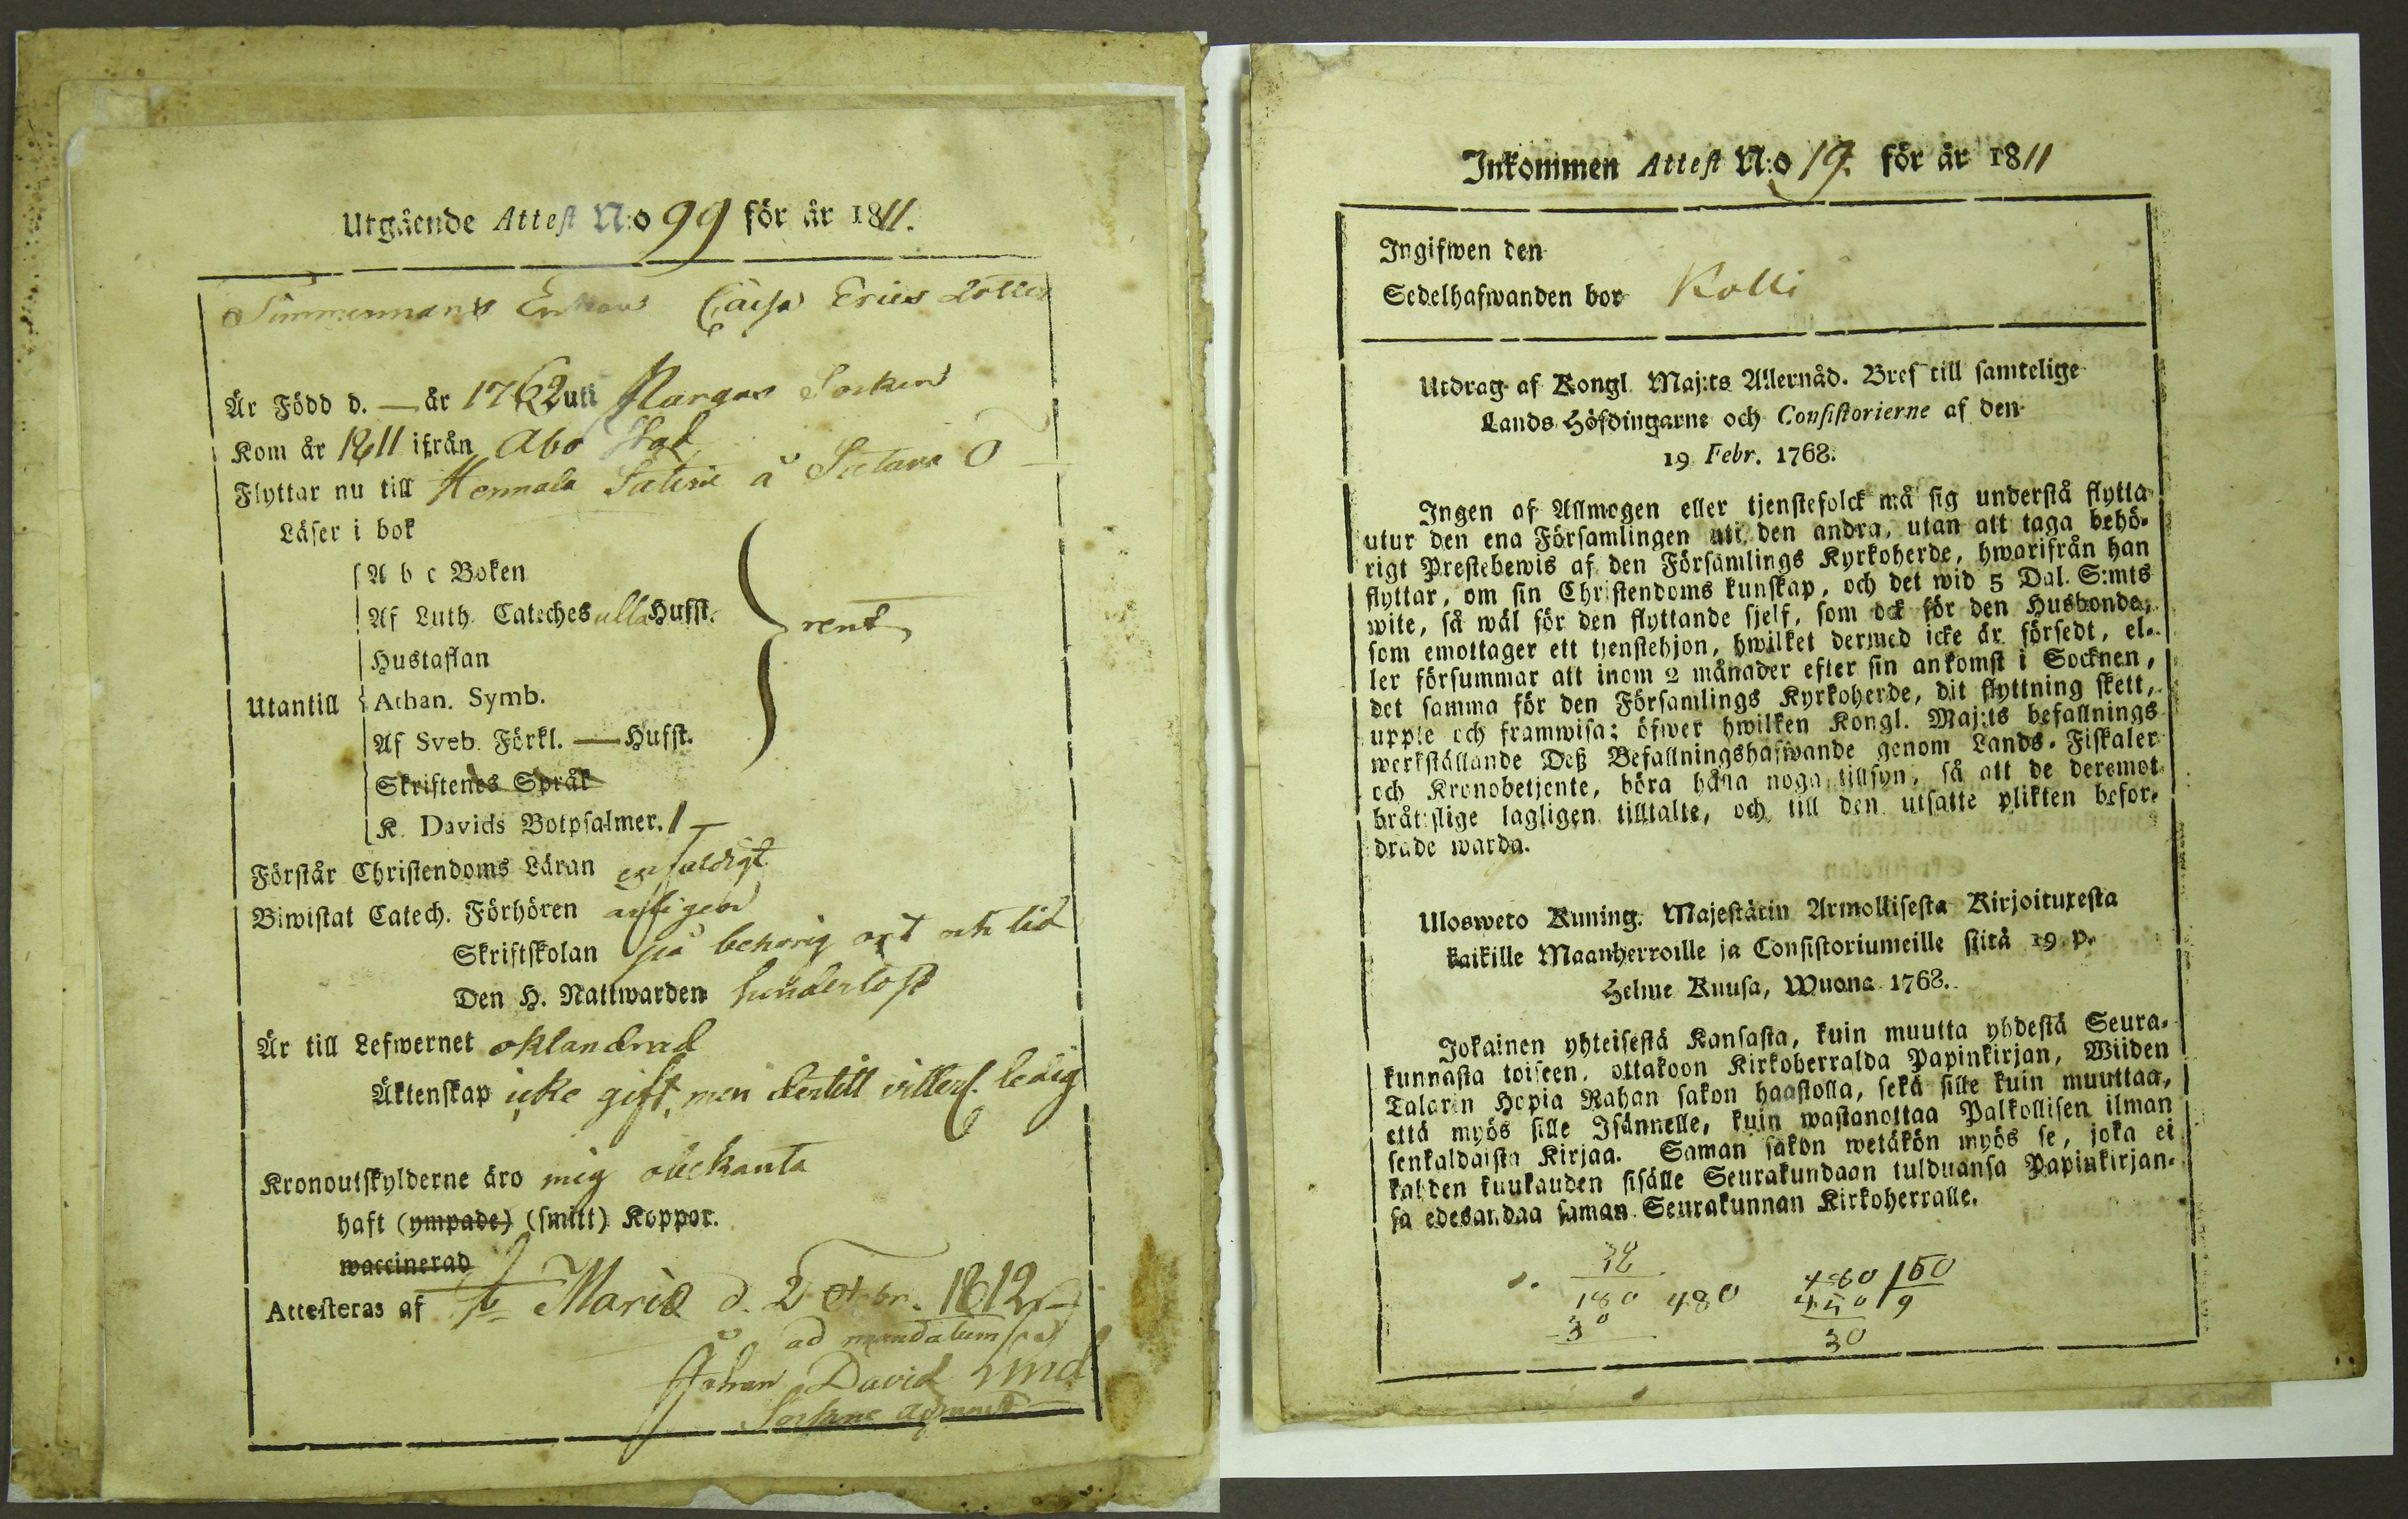 Utgående Attest N:o 99 för år 1811.
Timmermans Enkan Cajsa Ericsdotter
Är Född d. — år 1762 uti Nargus Socken
Kom år 1811 ifrån Åbo Stad
Flyttar nu till Hennala Säteri å Satava Ö
Läser i bok
A b c Boken
Af Luth. Cateches alla Hufst.
rent
Hustaflan
Utantill Athan. Symb.
Af Sveb. Förkl. — Hufst.
Skriftenes Språk
K. Davids Botpsalmer. 1
Förstår Christendoms Läran enfaldigt
Biwistat Catech. Förhören
Skriftskolan på behörig ort och tid
Den H. Nattwarden
Är till Lefwernet oklandrad
Äktenskap icke gift, men dertill ledig
Kronoutskylderne äro mig obekanta
haft (ympade) (smitt) Koppor.
waccinerad
Attesteras af St Mariæ d. 2 Octobr. 1812
ad mandatum
Johan David Lind
Sockne Adjunct
Inkommen Attest N:o 19. för år 1811
Ingifwen den
Sedelhafwanden bor Kolli
Utdrag af Kongl. Maj:ts Allernåd. Bref till samtelige
Lands Höfdingarne och Consistorierne af den
19 Febr. 1768.
Ingen af Allmogen eller tjenstefolck må sig understå flytta
utur den ena Församlingen uti den andra, utan att taga behö-
rigt Prestebewis af den Församlings Kyrkoherde, hwarifrån han
flyttar, om sin Christendoms kunskap, och det wid 5 Dal. S:mts
wite, så wäl för den flyttande sjelf, som ock för den Husbonde,
som emottager ett tjenstehjon, hwilket dermed icke är försedt, el-
ler försummar att inom 2 månader efter sin ankomst i Socknen,
det samma för den Församlings Kyrkoherde, dit flyttning skett,
uppte och framwisa; öfwer hwilken Kongl. Maj:ts befallnings
werkställande Deß Befallningshafwande genom Lands-Fiskaler
och Kronobetjente, böra hålla noga tillsyn, så att de deremot
bråtslige lagligen tilltalte, och till den utsatte plikten befor-
drade warda.
Ulosweto Kuning. Majestätin Armollisesta Kirjoituxesta
kaikille Maanherroille ja Consistoriumeille siitä 19 p.
Helme Kuusa, Wuona 1768.
Jokainen yhteisestä Kansasta, kuin muutta yhdestä Seura-
kunnasta toiseen, ottakoon Kirkoherralda Papinkirjan, Wiiden
Talarin Hopia Rahan sakon haastolla, sekä sille kuin muuttaa,
että myös sille Isännelle, kuin wastanottaa Palkollisen ilman
senkaldaista Kirjaa. Saman sakon wetäkön myös se, joka ei
kahden kuukauden sisälle Seurakundaan tulduansa Papinkirjan-
sa edesandaa saman Seurakunnan Kirkoherralle.
180 480 480 50
450 9
30